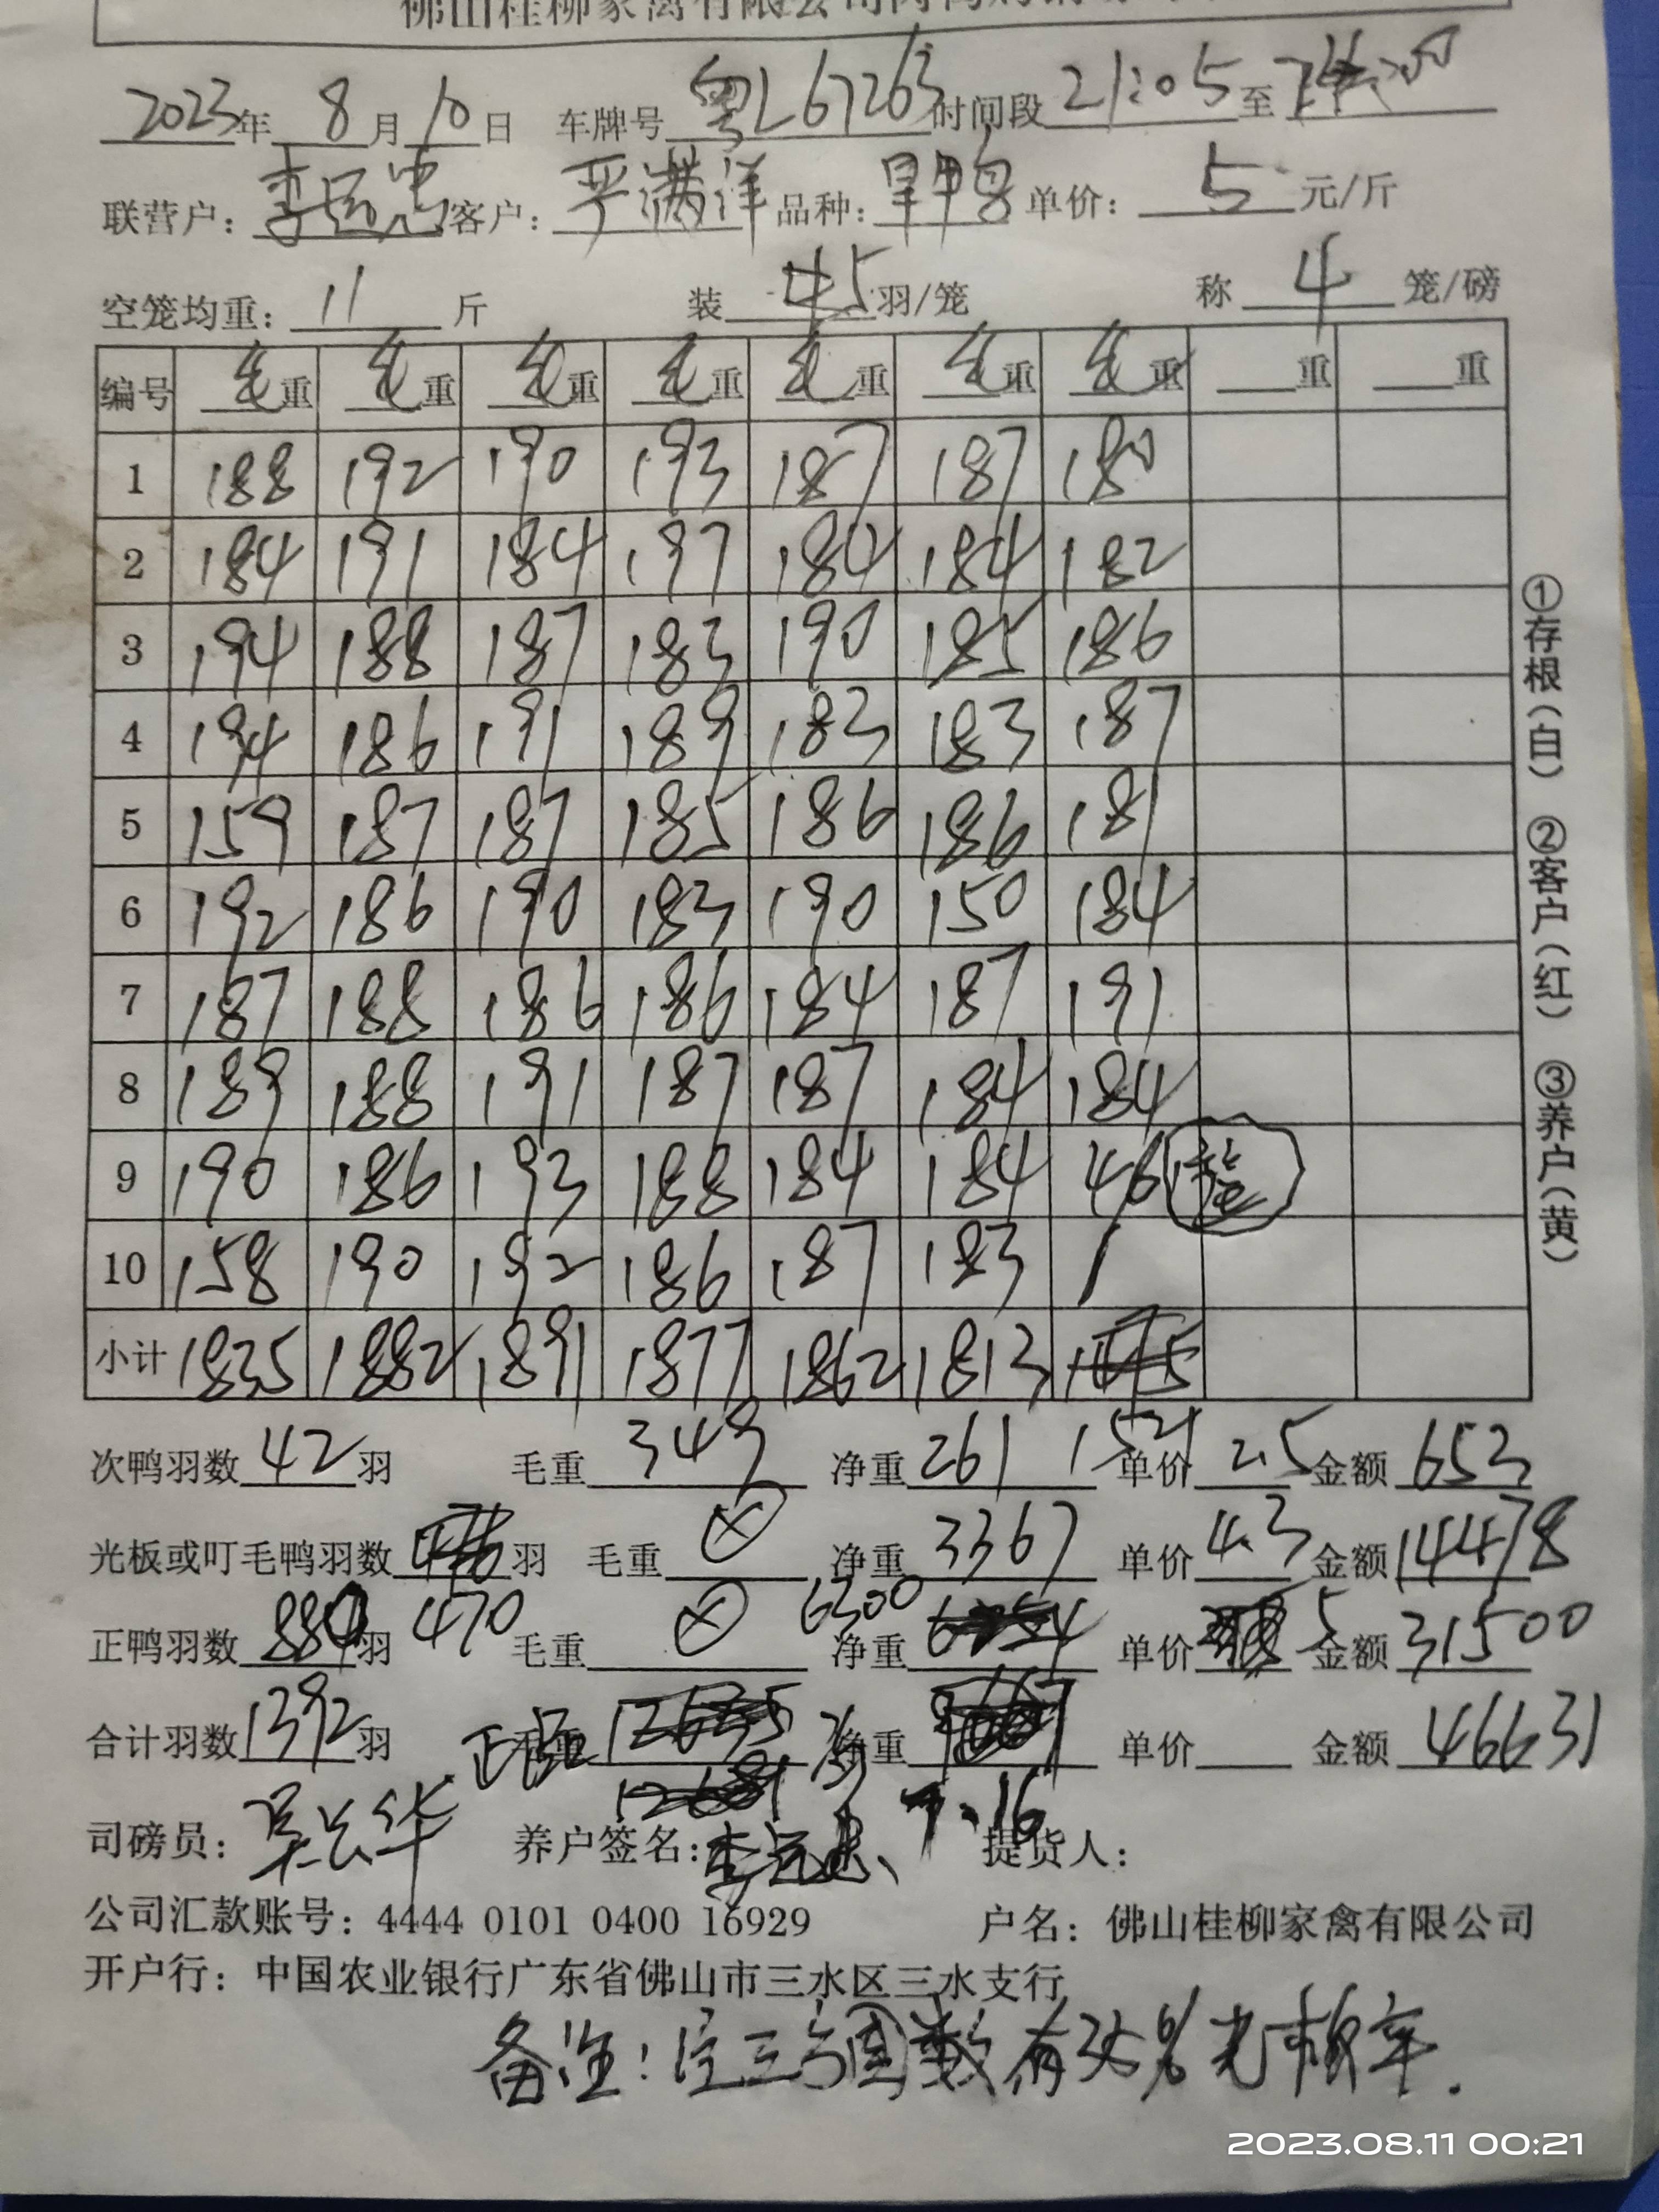 佛山桂柳家禽有限公司
2023年 8 月 10 日 车牌号 粤L67263 时间段 21:05 至
联营户: 李远忠 客户: 严满洋 品种: 旱鸭 单价: 5 元/斤
空笼均重: 11 斤 装 45 羽/笼 称 4 笼/磅
编号 毛重 毛重 毛重 毛重 毛重 毛重 毛重 重 重
1 188 192 190 193 187 187 180
2 184 191 184 197 184 184 182
3 194 188 187 183 190 185 186
4 194 186 191 189 183 183 187
5 159 187 187 185 186 186 181
6 192 186 190 183 190 150 184
7 187 188 186 186 184 187 191
8 189 188 191 187 187 184 184
9 190 186 193 188 184 184 46
10 158 190 192 186 187 183 /
小计 1835 1882 1891 1877 1862 1813
次鸭羽数 42 羽 毛重 349 净重 261 1521 单价 2.5 金额 653
光板或叮毛鸭羽数 羽 毛重 ⊗ 净重 3367 单价 4.3 金额 14478
正鸭羽数 880 羽 470 毛重 ⊗ 6300 净重 单价 5 金额 31500
合计羽数 1392 羽 净重 单价 金额 46631
司磅员: 吴长华 养户签名: 李远忠 7.16 提货人:
公司汇款账号: 4444 0101 0400 16929 户名: 佛山桂柳家禽有限公司
开户行: 中国农业银行广东省佛山市三水区三水支行
备注:
①存根(白) ②客户(红) ③养户(黄)
2023.08.11 00:21